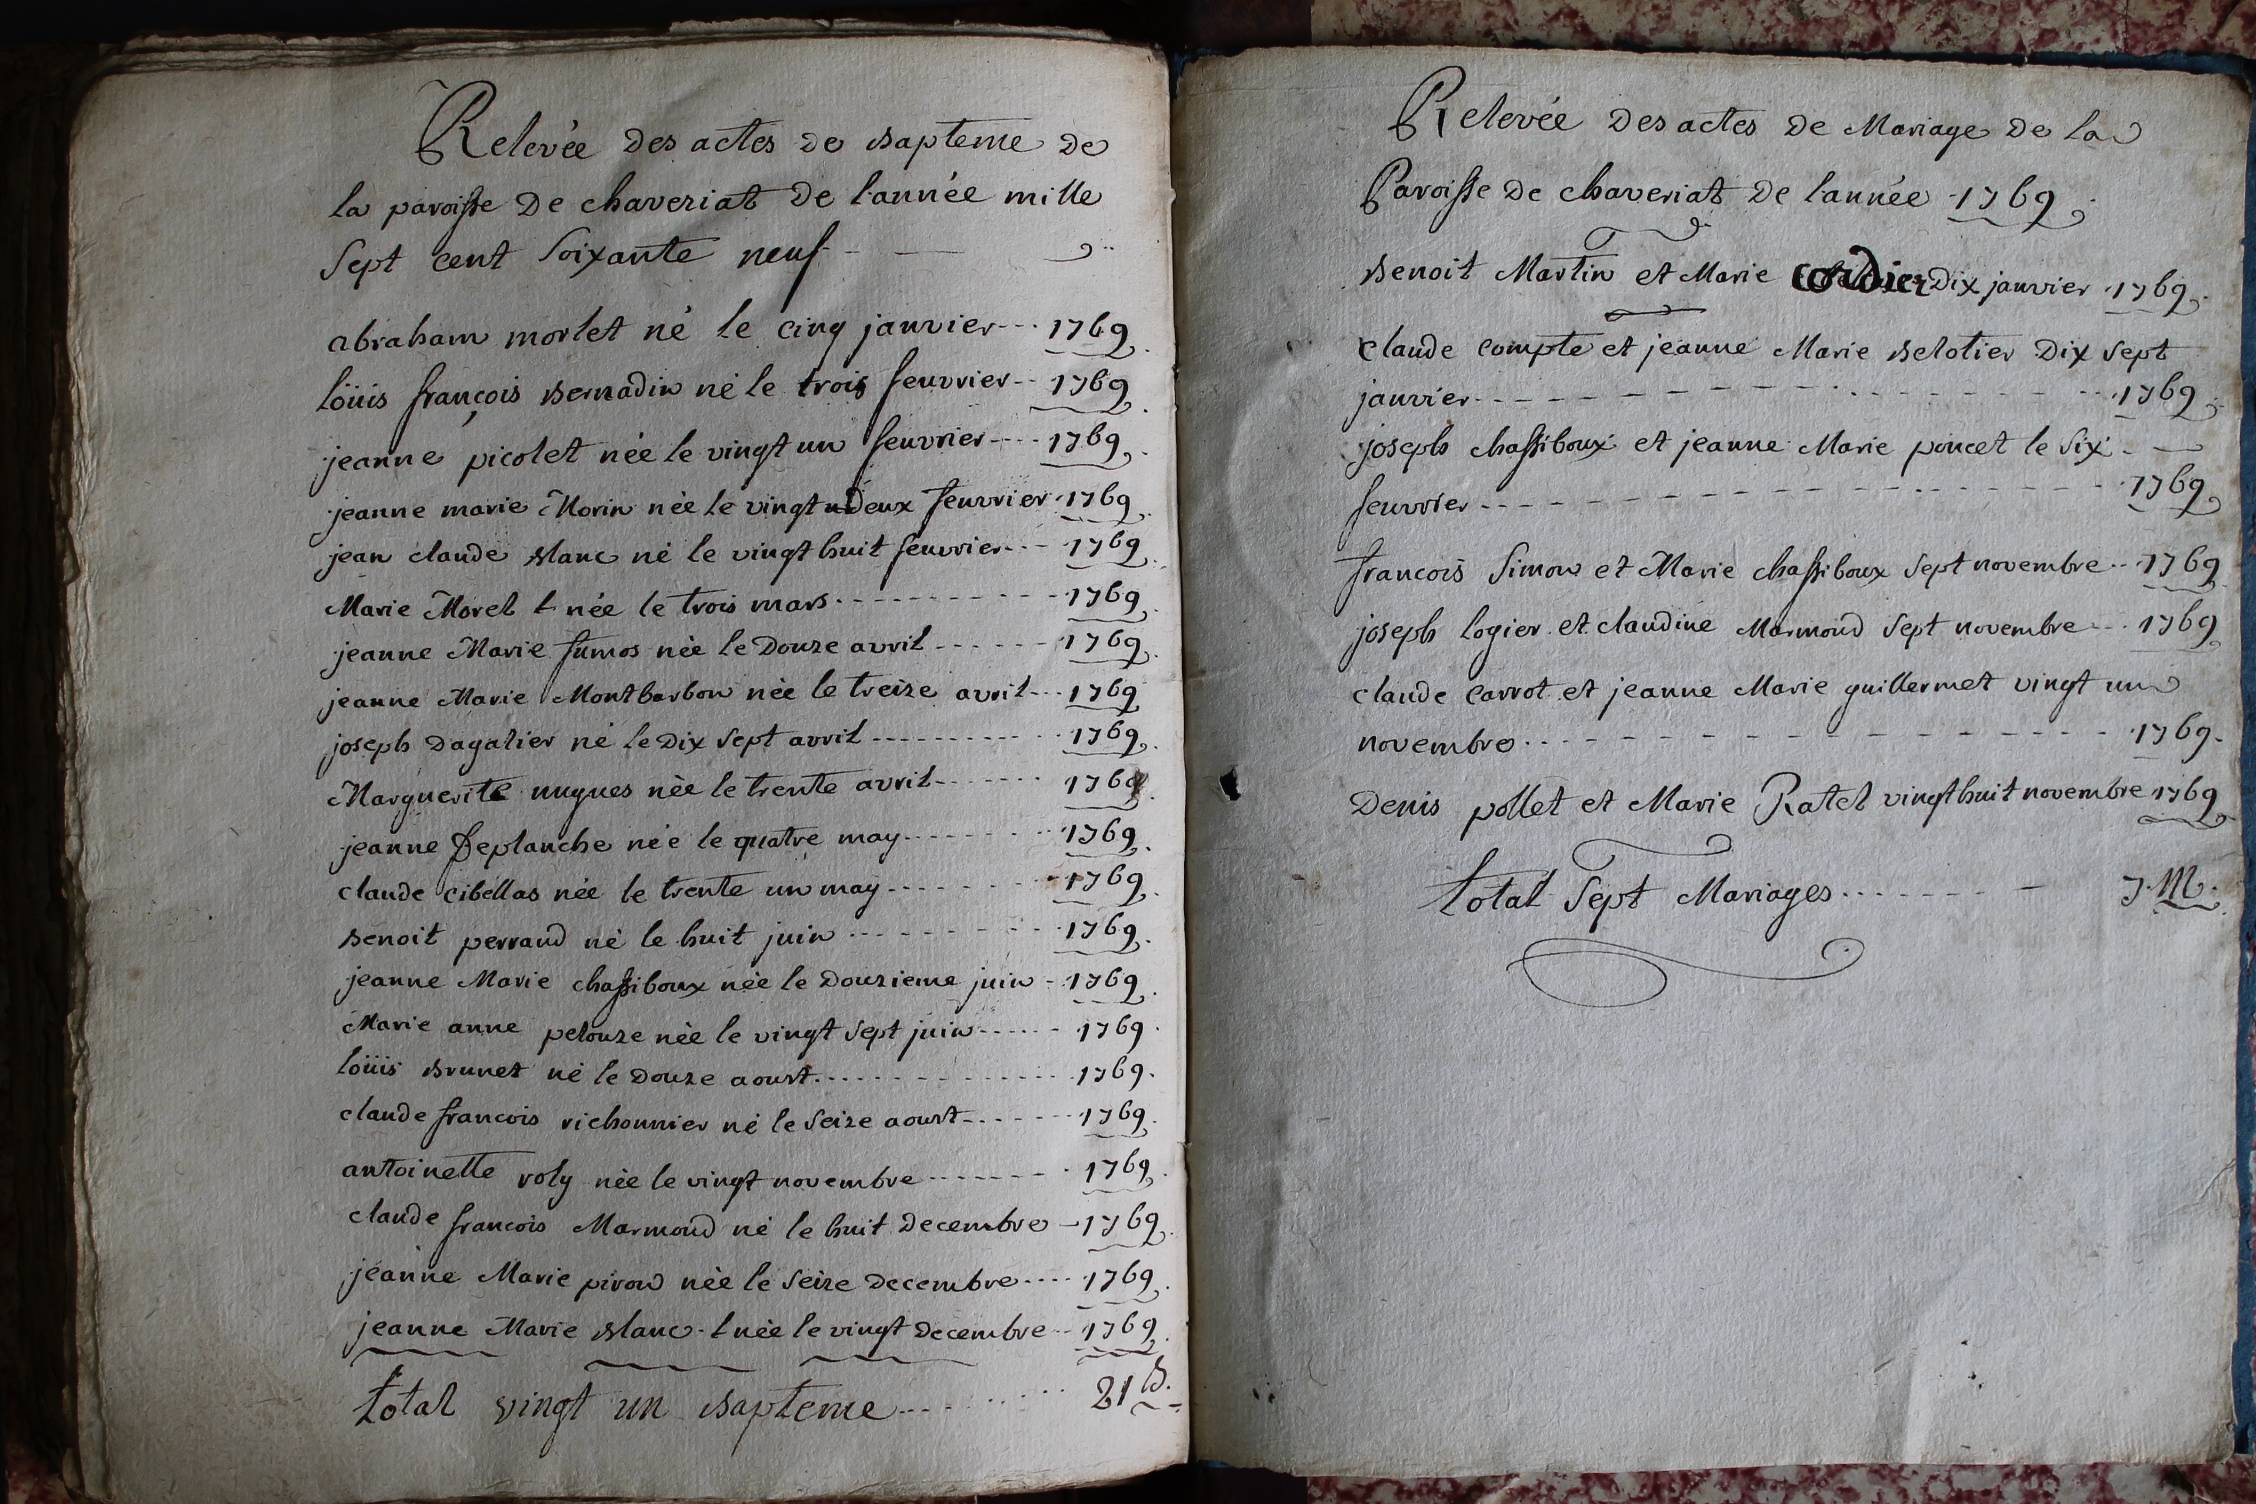 Relevée des actes de Bapteme de
la paroisse De chaveriat De l'année mille
Sept cent Soixante neuf
abraham morlet né le cinq janvier 1769
loüis françois Bernadin né le trois feuvrier 1769
jeanne picolet née le vingt un feuvrier 1769
jeanne marie Morin née le vingt Deux feuvrier 1769
jean claude Blanc né le vingt huit feuvrier 1769
Marie Morel née le trois mars 1769
jeanne Marie fumos née le Douze avril 1769
jeanne Marie Montbarbon née le treize avril 1769
joseph Dagalier né le Dix Sept avril 1769
Marguerite nugues née le trente avril 1769
jeanne Deplanche née le quatre may 1769
claude cibellas née le trente un may 1769
Benoit perraud né le huit juin 1769
jeanne Marie chassiboux née le Douzieme juin 1769
Marie anne pelouze née le vingt Sept juin 1769
loüis Brunet né le Douze aoust 1769
claude francois richonnier né le Seize aoust 1769
antoinette roly née le vingt novembre 1769
claude francois Marmond né le huit Decembre 1769
jeanne Marie piron née le Seize Decembre 1769
jeanne Marie Blanc née le vingt Decembre 1769
total vingt un Bapteme 21 B.
Relevée Des actes De Mariage De la
Paroisse De chaveriat De l'année 1769
Benoit Martin et Marie cordier Dix janvier 1769
claude compte et jeanne Marie Belotier Dix Sept
janvier 1769
joseph chassiboux et jeanne Marie poncet le Six
feuvrier 1769
francois Simon et Marie chassiboux Sept novembre 1769
joseph logier et claudine Marmond Sept novembre 1769
claude carrot et jeanne Marie guillermet vingt un
novembre 1769
Denis pollet et Marie Ratel vingt huit novembre 1769
total Sept Mariages 7. M.